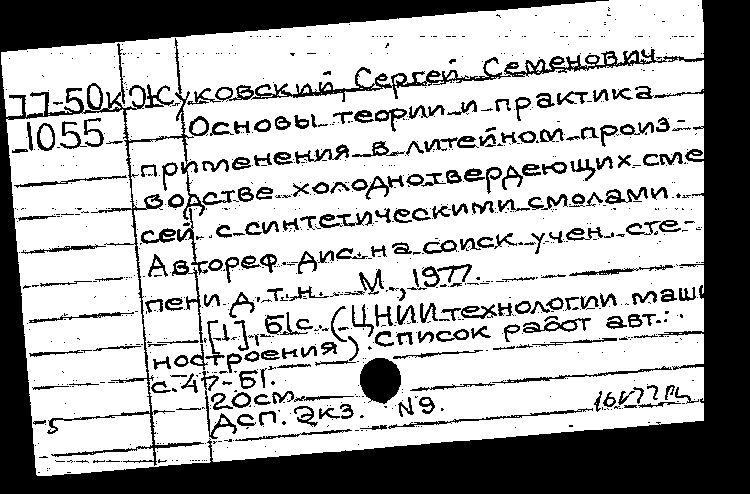 77-50к Жуковский, Сергей Семенович
1055 Основы теории и практика
применения в литейном произ-
водстве холоднотвердеющих сме
сей с синтетическими смолами.
Автореф. дис. на соиск. учен. сте-
пени д.т.н. М., 1977.
[1], 51с. (ЦНИИ технологии маши
ностроения). Список работ авт.:
с.47-51.
20см
Дсп. Экз. №9.
5